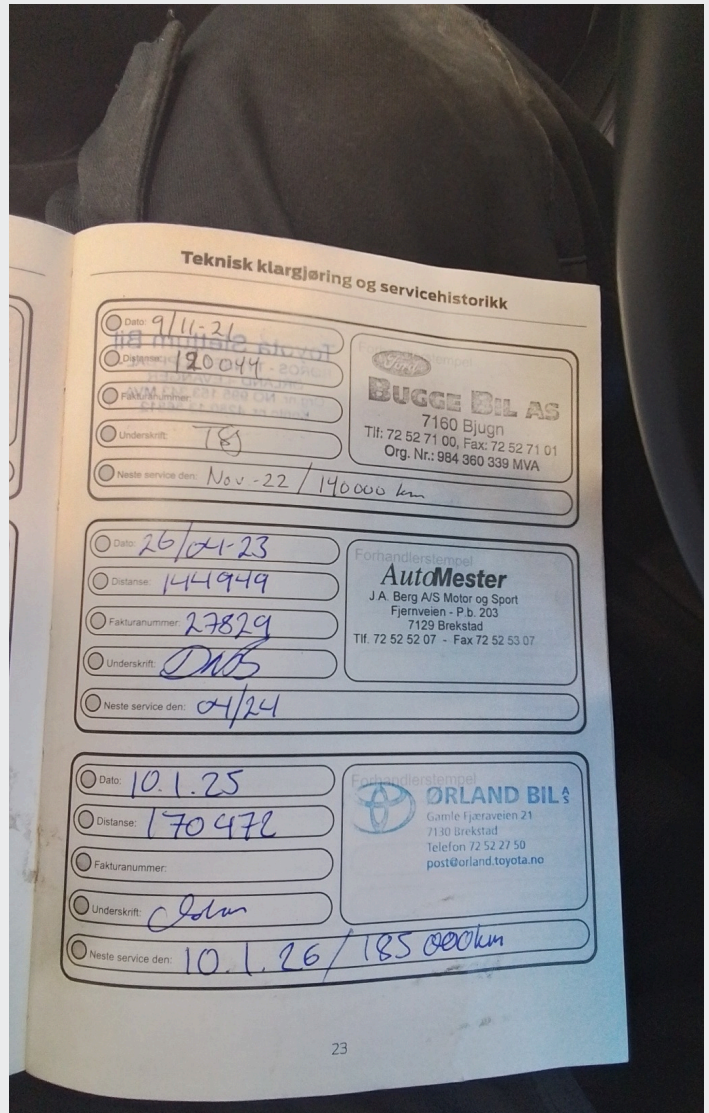 Teknisk klargjøring og servicehistorikk
Dato: 9/11-21
Distanse: 120044
Fakturanummer:
Underskrift:
Neste service den: Nov-22 / 140000 km
Forhandlerstempel
Ford
BUGGE BIL AS
7160 Bjugn
Tlf: 72 52 71 00, Fax: 72 52 71 01
Org. Nr.: 984 360 339 MVA
Dato: 26/04-23
Distanse: 144949
Fakturanummer: 27829
Underskrift:
Neste service den: 04/24
Forhandlerstempel
AutoMester
J A. Berg A/S Motor og Sport
Fjernveien - P.b. 203
7129 Brekstad
Tlf. 72 52 52 07 - Fax 72 52 53 07
Dato: 10.1.25
Distanse: 170472
Fakturanummer:
Underskrift:
Neste service den: 10.1.26 / 185 000km
Forhandlerstempel
ØRLAND BIL AS
Gamle Fjæraveien 21
7130 Brekstad
Telefon 72 52 27 50
post@orland.toyota.no
23